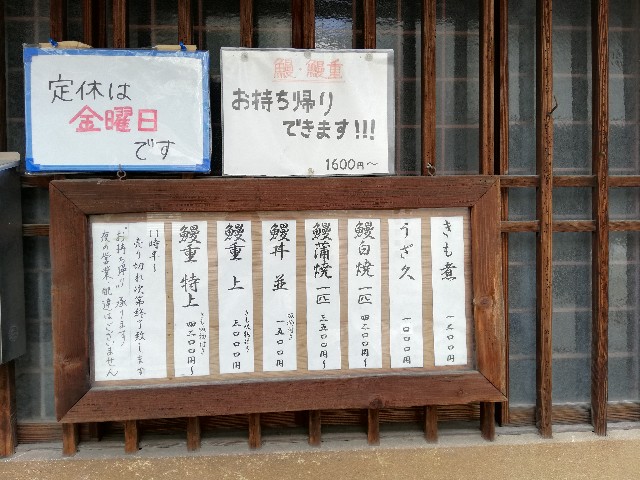 定休は
金曜日
です
鰻・鰻重
お持ち帰り
できます!!!
1600円〜
きも煮 一二〇〇円
うざ久 一〇〇〇円
鰻白焼 一匹 四二〇〇円〜
鰻蒲焼 一匹 三五〇〇円〜
鰻丼 並 一五〇〇円
鰻重 上 三〇〇〇円
きも吸物付き
鰻重 特上 四二〇〇円〜
きも吸物付き
11時半〜
売り切れ次第終了致します
お持ち帰り 承ります
夜の営業、配達はございません